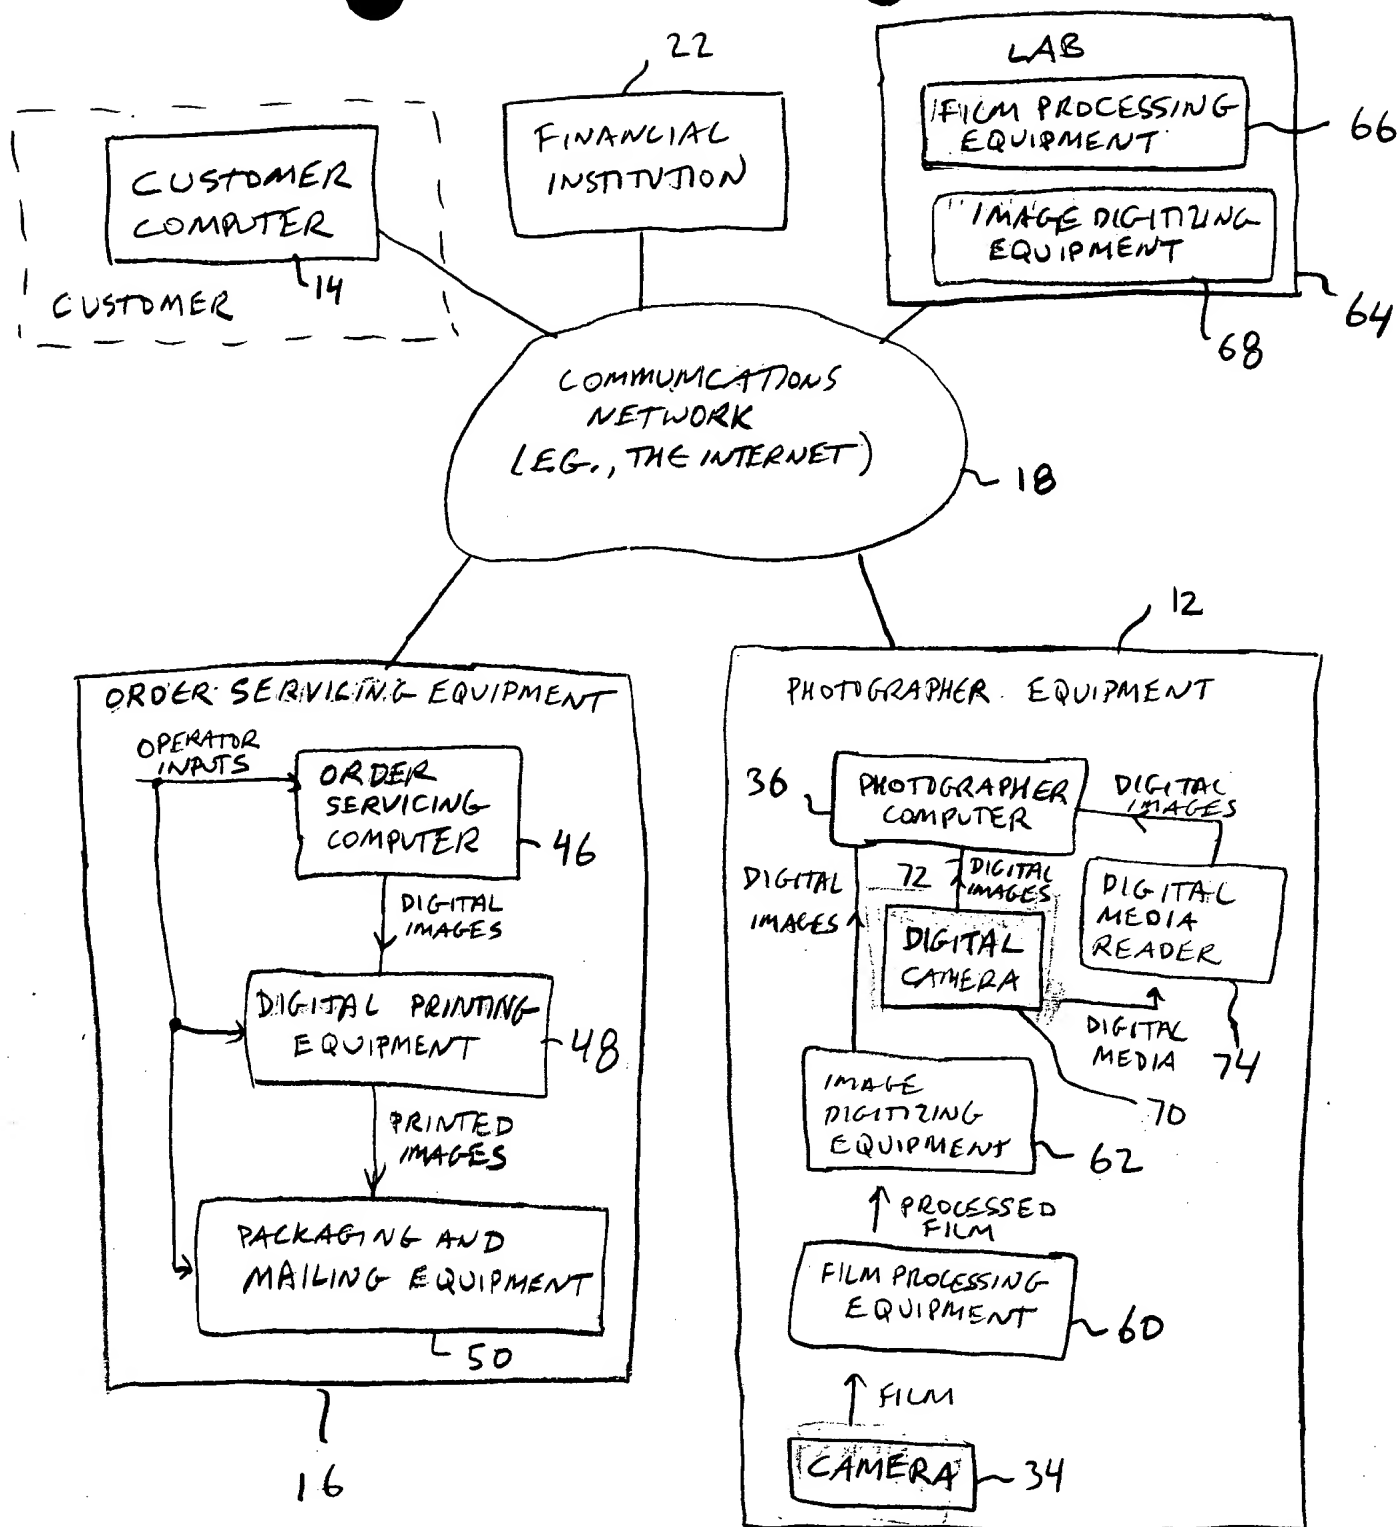 22
LAB
FILM PROCESSING
EQUIPMENT
66
IMAGE DIGITIZING
EQUIPMENT
64
68
FINANCIAL
INSTITUTION
CUSTOMER
COMPUTER
14
CUSTOMER
COMMUNICATIONS
NETWORK
(E.G., THE INTERNET)
18
12
ORDER SERVICING EQUIPMENT
OPERATOR
INPUTS
ORDER
SERVICING
COMPUTER
46
DIGITAL
IMAGES
DIGITAL PRINTING
EQUIPMENT
48
PRINTED
IMAGES
PACKAGING AND
MAILING EQUIPMENT
50
16
PHOTOGRAPHER EQUIPMENT
36
PHOTOGRAPHER
COMPUTER
DIGITAL
IMAGES
DIGITAL
IMAGES
72
DIGITAL
IMAGES
DIGITAL
MEDIA
READER
DIGITAL
CAMERA
DIGITAL
MEDIA
74
70
IMAGE
DIGITIZING
EQUIPMENT
62
PROCESSED
FILM
FILM PROCESSING
EQUIPMENT
60
FILM
CAMERA
34